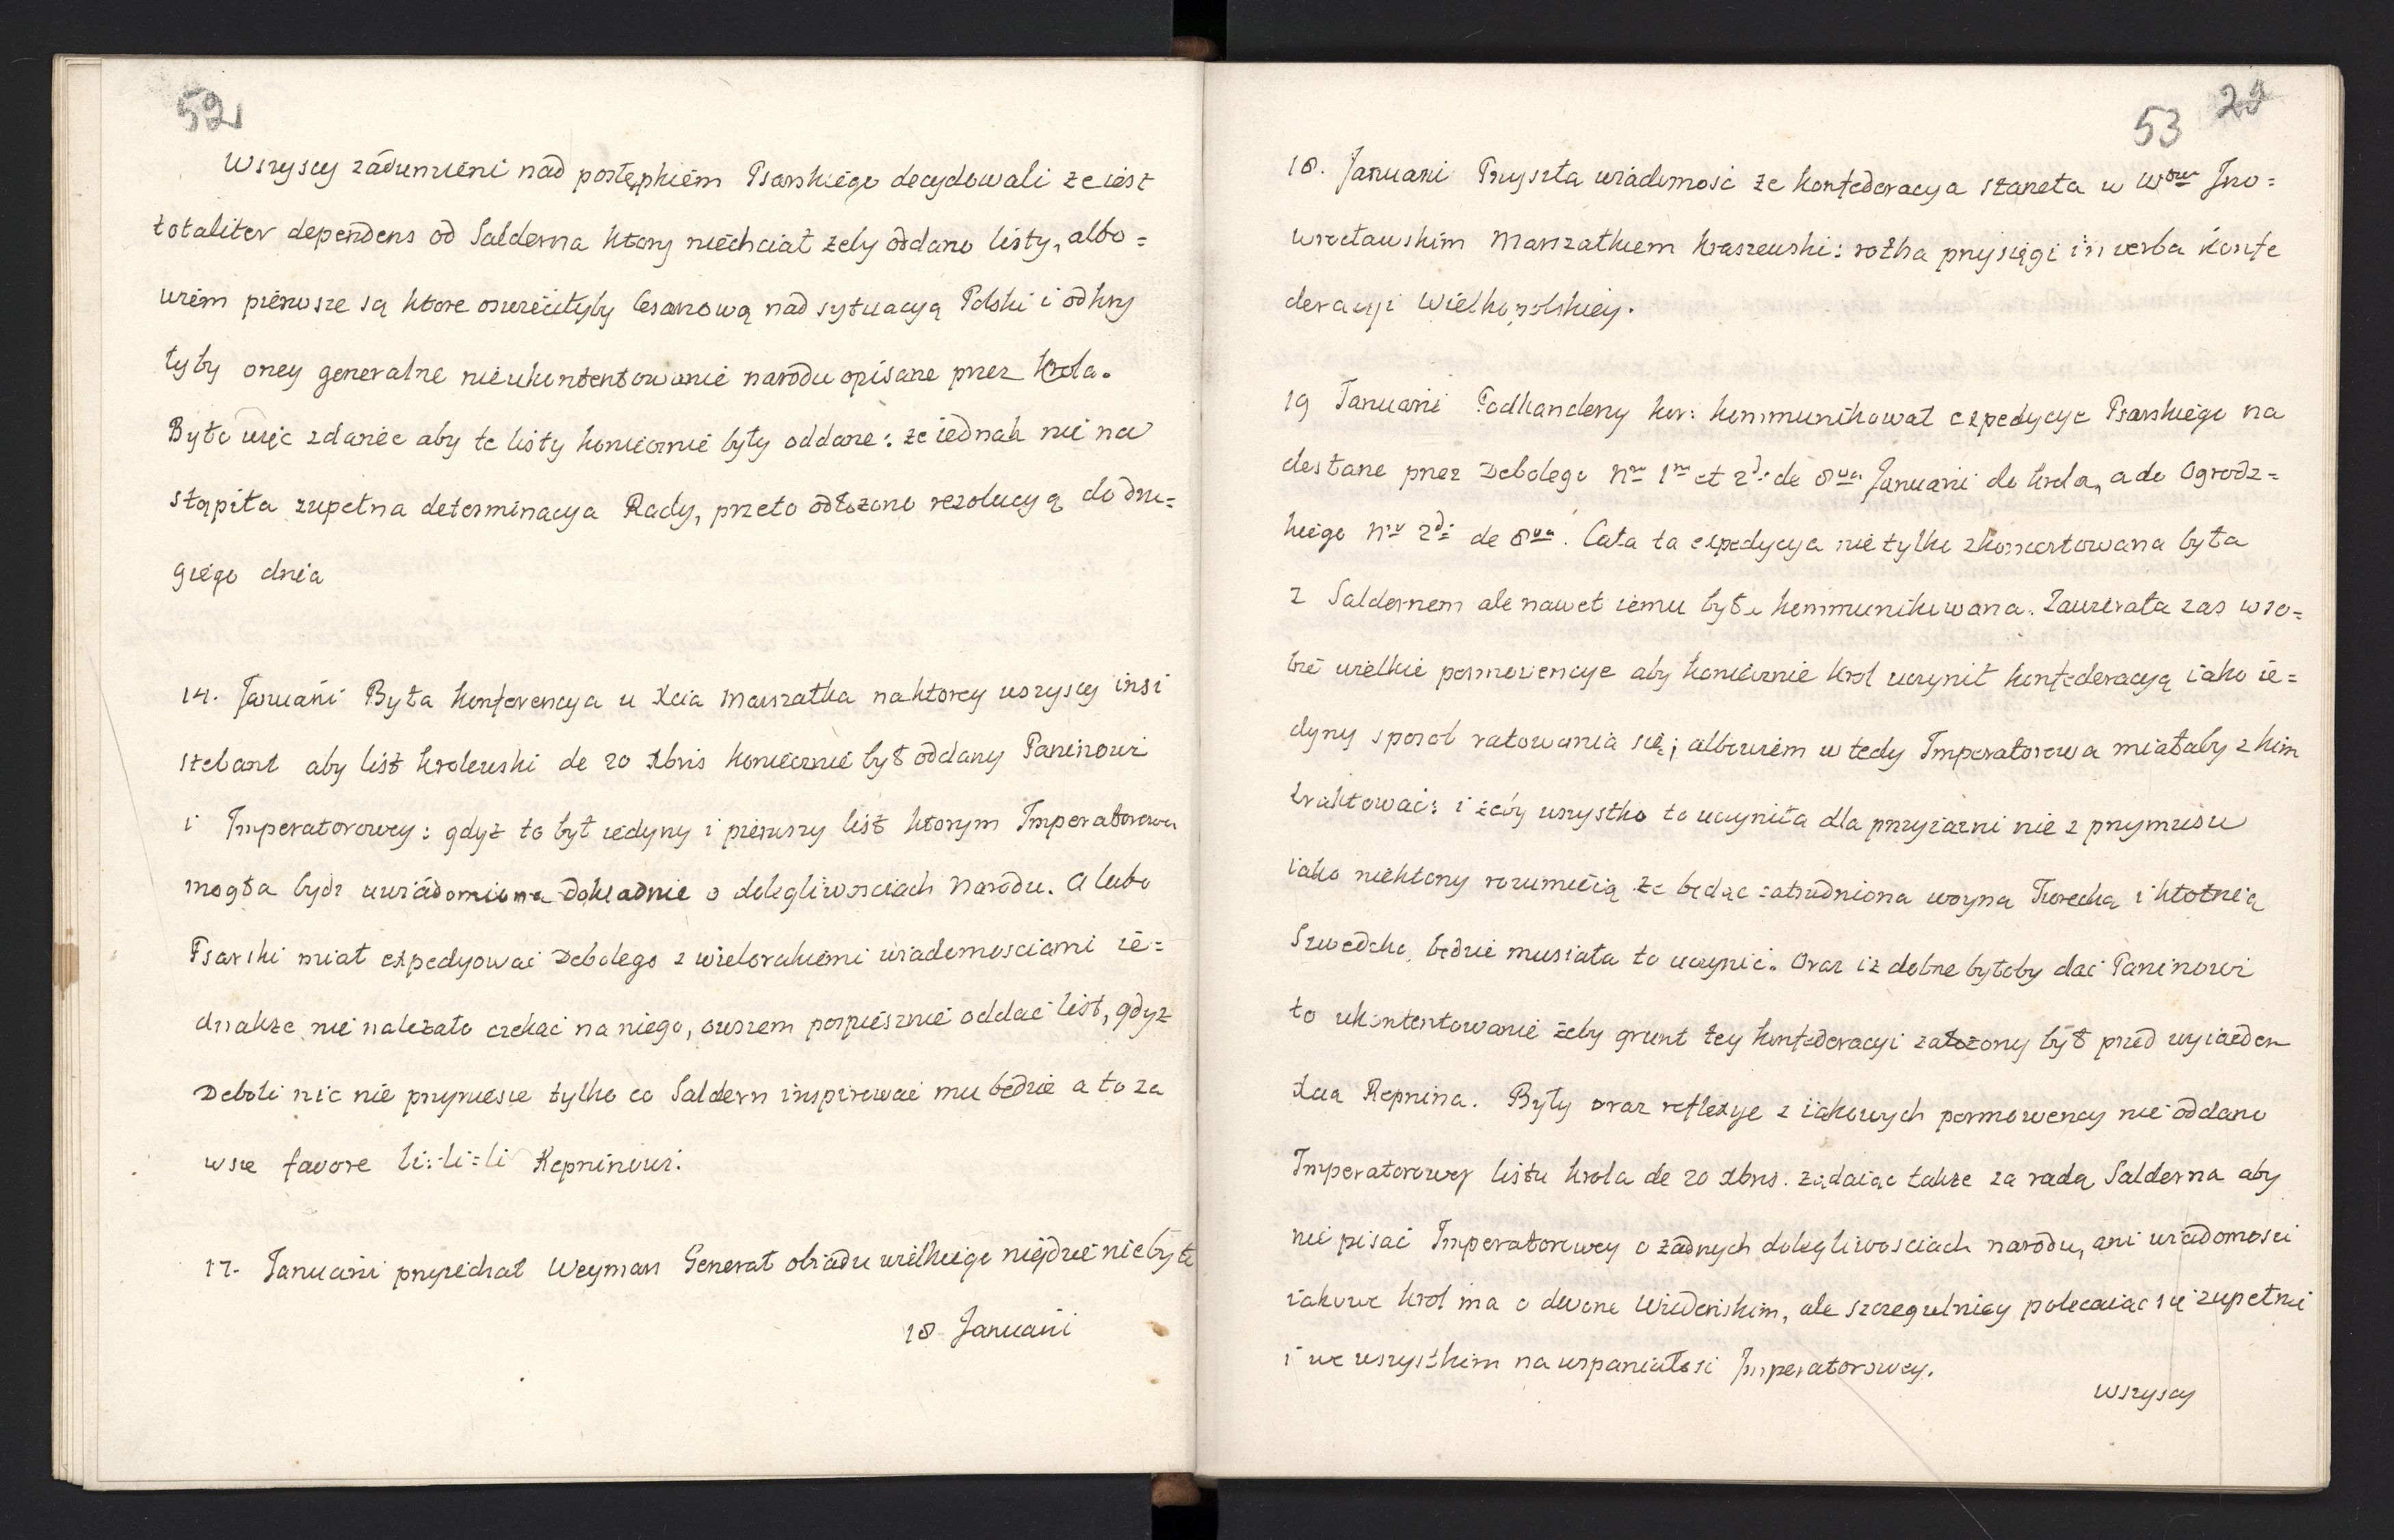 52
Wszyscy zadumieni nad postępkiem Psarskiego decydowali ze iest
totaliter dependens od Salderna ktory niechciał zeby oddano listy, albo =
wiem pierwsze są ktore oswieciłyby Cesarzową nad sytuacyą Polski i odkry
łyby oney generalne nieukontentowanie narodu opisane przez Krola.
Było więc zdanie aby te listy koniecznie były oddane: ze iednak nie na
stąpiła zupełna determinacya Rady, przeto odłozono rezolucyą do dru=
giego dnia
14. Januarii Była konferencya u Xcia Marszałka na ktorey wszyscy insi
stebant aby list krolewski de 20 Xbris koniecznie był oddany Paninowi
i Imperatorowey: gdyz to był iedyny i pierwszy list ktorym Imperatorowa
mogła bydz uwiadomiona dokładnie o dolegliwosciach narodu. A lubo
Psarski miał expedyowac Debolego z wielorakiemi wiadomosciami ie=
dnakze nie nalezało czekac na niego, owszem pospiesznie oddac list, gdyz
Deboli nic nie przyniesie tylko co Saldern inspirowac mu będzie a to za
wsze favore li=li=li Repninowi.
17. Januarii przyiechał Weyman Generał obiadu wielkiego nigdzie nie było
18 Januarii
53 29
18. Januarii Przyszła wiadomosc ze konfederacya stanęła w Wdztwie Ino=
wrocławskim Marszałkiem Kraszewski: rotha przysięgi in verba konfe
deracyi Wielkopolskiey.
19 Januarii Podkanclerzy kor: kommunikował expedycye Psarskiego na
desłane przez Debolego Nro 1mo et 2do de 8va Januarii do Krola, a do Ogrodz=
kiego Nro 2do de 8va. Cała ta expedycya nie tylko zkoncertowana była
z Saldernem ale nawet iemu była kommunikowana. Zawierała zas w so=
bie wielkie persvazye aby koniecznie Krol uczynił konfederacyą iako ie=
dyny sposob ratowania się; albowiem wtedy Imperatorowa miałaby z kim
traktowac: i zeby wszystko to uczyniła dla przyiazni nie z przymusu
iako niektorzy rozumieią ze będąc zatrudniona woyna Turecką i kłotnią
Szwedzką, będzie musiała to uczynic. Oraz iz dobrze byłoby dac Paninowi
to ukontentowanie zeby grunt tey konfederacyi załozony był przed wyiazdem
Xcia Repnina. Były oraz reflexye z iakowych nie oddano
Imperatorowey listu Krola de 20 Xbris. ządaiąc takze za radą Salderna aby
nie pisac Imperatorowey o zadnych dolegliwosciach narodu, ani wiadomosci
iakowe Krol ma o dworze Wiedenskim, ale szczegulniey polecaiąc się zupełnie
i we wszystkim na wspaniałosi Imperatorowey.
wszyscy